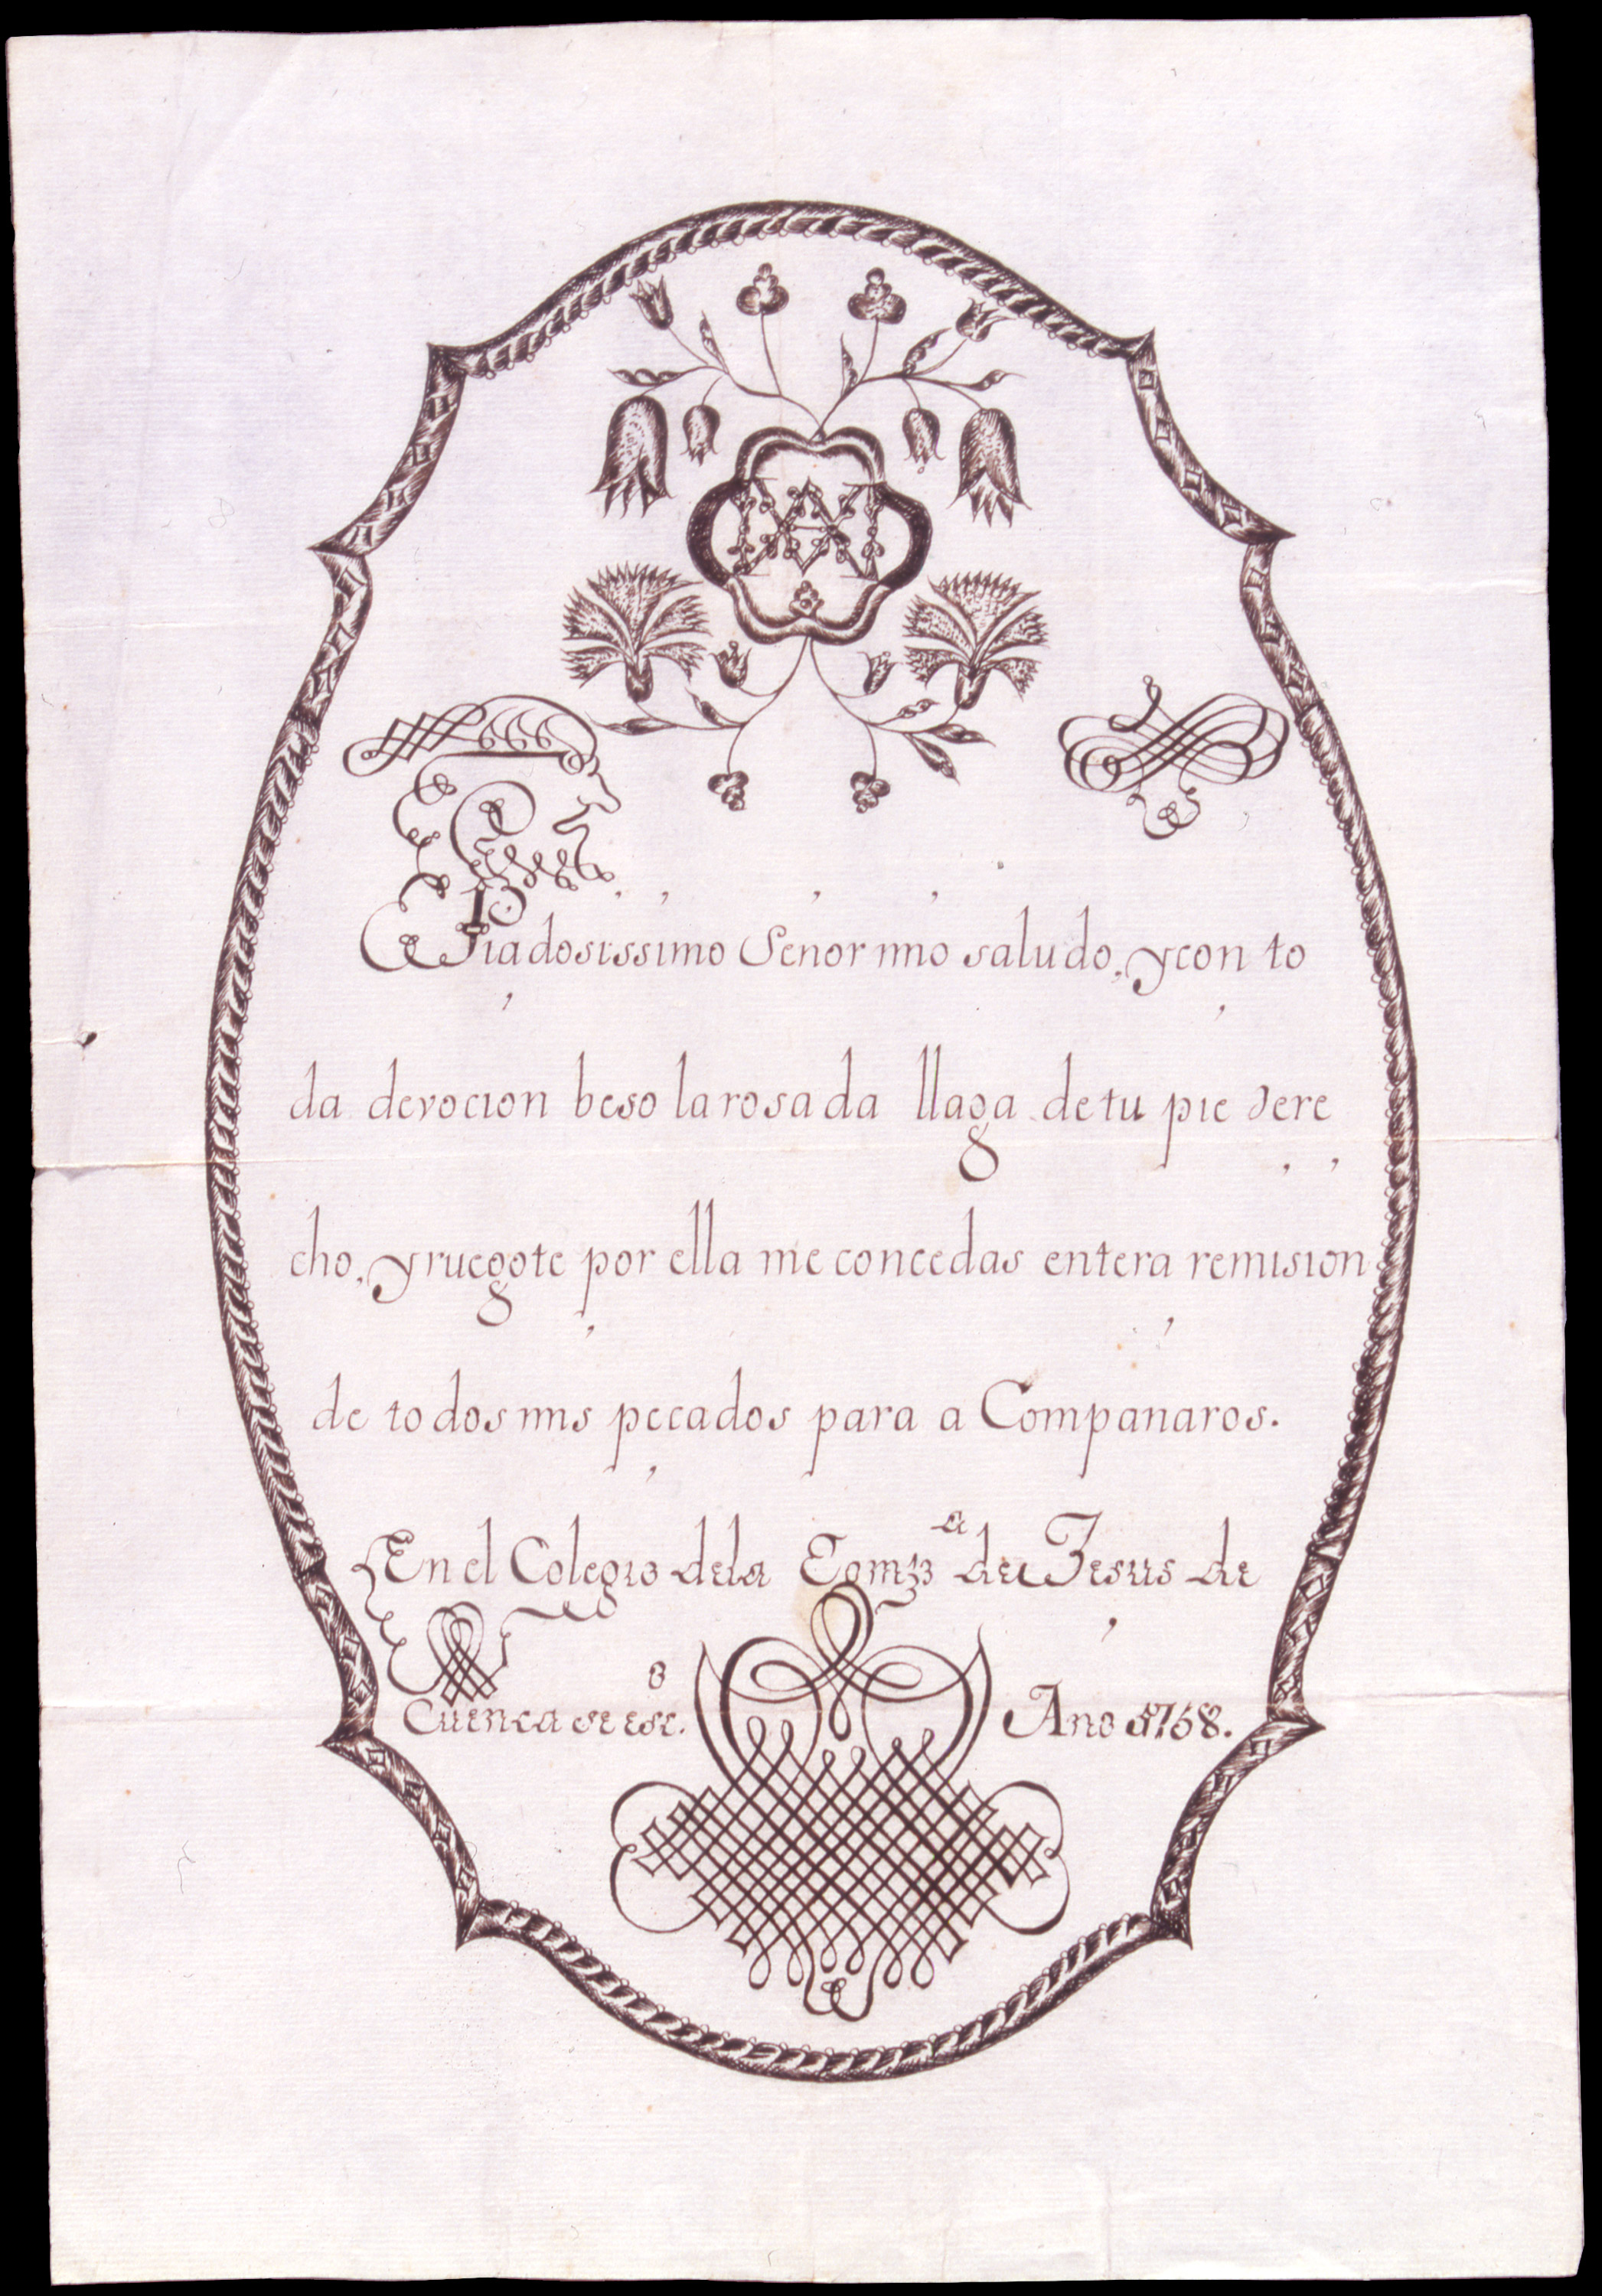 Piadosissimo Senor mio saludo, y con to
da devocion beso la rosada llaga de tu pie dere
cho, y ruegote por ella me concedas entera remision
de todos mis pecados para a Companaros.
En el Colegio de la Comp.ª de Jesus de
Cuenca se esc.º Ano 1768.